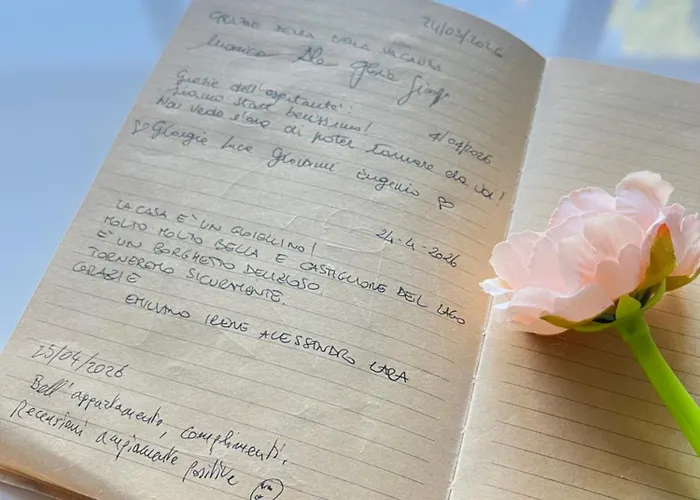 24/03/2026
GRAZIE DELLA BELLA VACANZA
Monica Ale Gloria
Grazie dell'ospitalità:
siamo stati benissimo! 4/04/2026
Non vedo l'ora di poter tornare da voi!
♡ Giorgia Luca Giovanni Eugenio ♡
24-4-2026
LA CASA E' UN GIOIELLINO!
MOLTO MOLTO BELLA E CASTIGLIONE DEL LAGO
E' UN BORGHETTO DELIZIOSO!
TORNEREMO SICURAMENTE.
GRAZIE
EMILIANO IRENE ALESSANDRO LARA
25/04/2026
Bell'appartamento, complimenti.
Recensioni ampiamente positive ☺